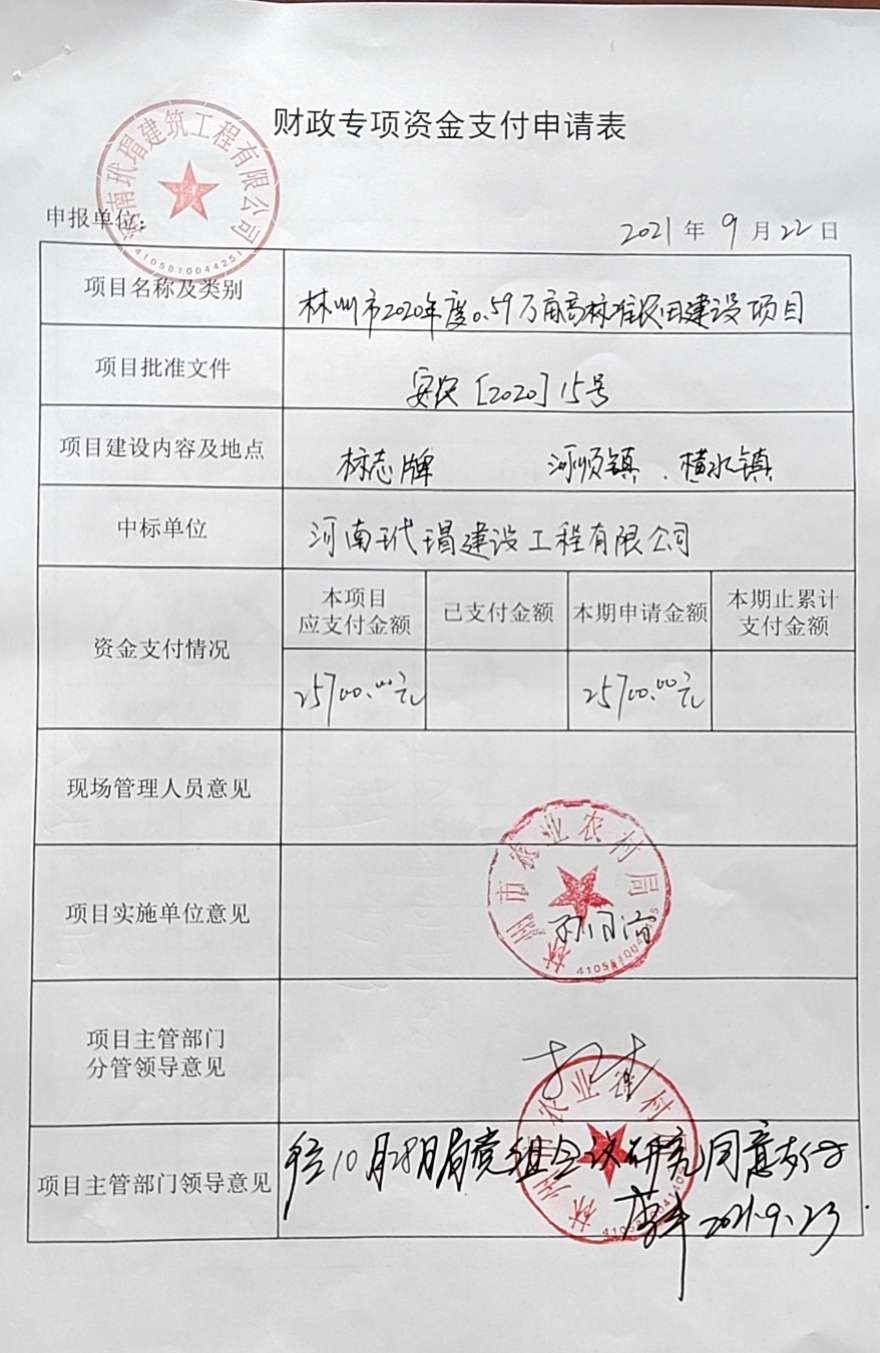 财政专项资金支付申请表
河南玳瑁建筑工程有限公司
4105810044251
申报单位：
2021年9月22日
项目名称及类别
林州市2020年度0.59万亩高标准农田建设项目
项目批准文件
安农［2020］15号
项目建设内容及地点
标志牌 河顺镇、横水镇
中标单位
河南玳瑁建设工程有限公司
资金支付情况
本项目应支付金额 已支付金额 本期申请金额 本期止累计支付金额
25700.00元 25700.00元
现场管理人员意见
项目实施单位意见
林州市农业农村局
项目主管部门
分管领导意见
项目主管部门领导意见
10月28日局党组会议研究同意支付
2021.9.23